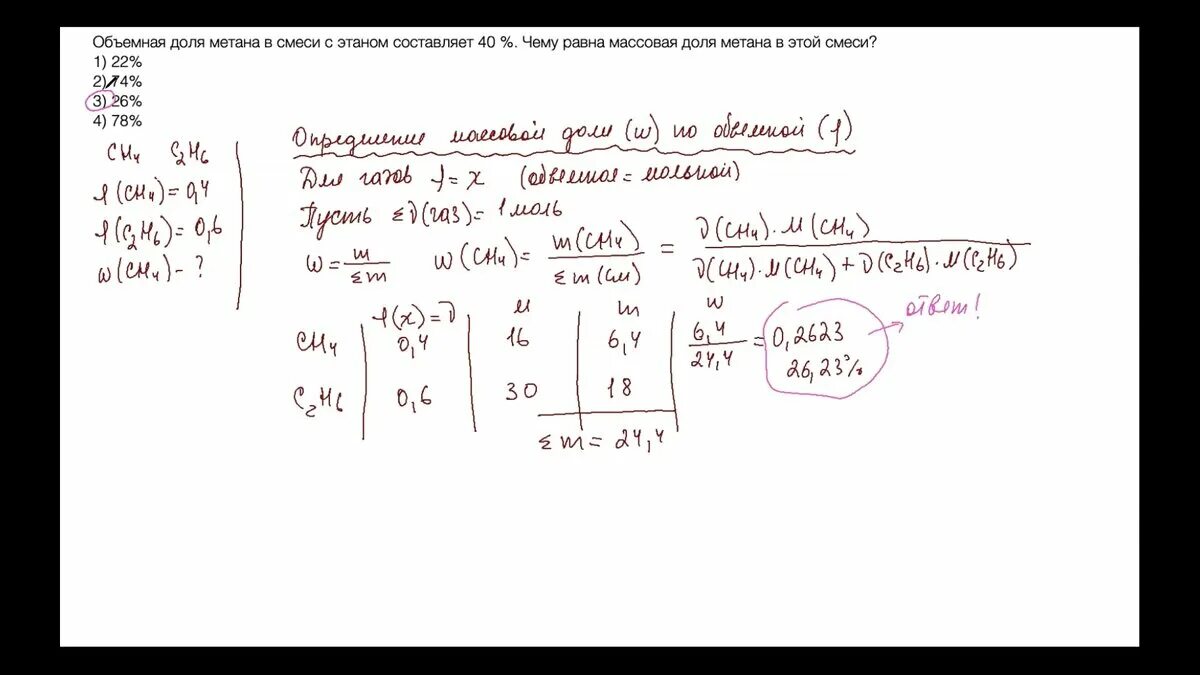 Объемная доля метана в смеси с этаном составляет 40 %. Чему равна массовая доля метана в этой смеси?
1) 22%
2) 74%
3) 26%
4) 78%
CH₄ C₂H₆
φ(CH₄) = 0,4
φ(C₂H₆) = 0,6
w(CH₄) - ?
Определение массовой доли (w) по объемной (φ)
Для газов φ = x (объемная = мольной)
Пусть Σν(газ) = 1 моль
w = m / Σm w(CH₄) = m(CH₄) / Σm(см) = ν(CH₄)·M(CH₄) / ν(CH₄)·M(CH₄) + ν(C₂H₆)·M(C₂H₆)
φ(x) = ν M m w
CH₄ 0,4 16 6,4 6,4 / 24,4 = 0,2623
26,23%
ответ!
C₂H₆ 0,6 30 18
Σm = 24,4